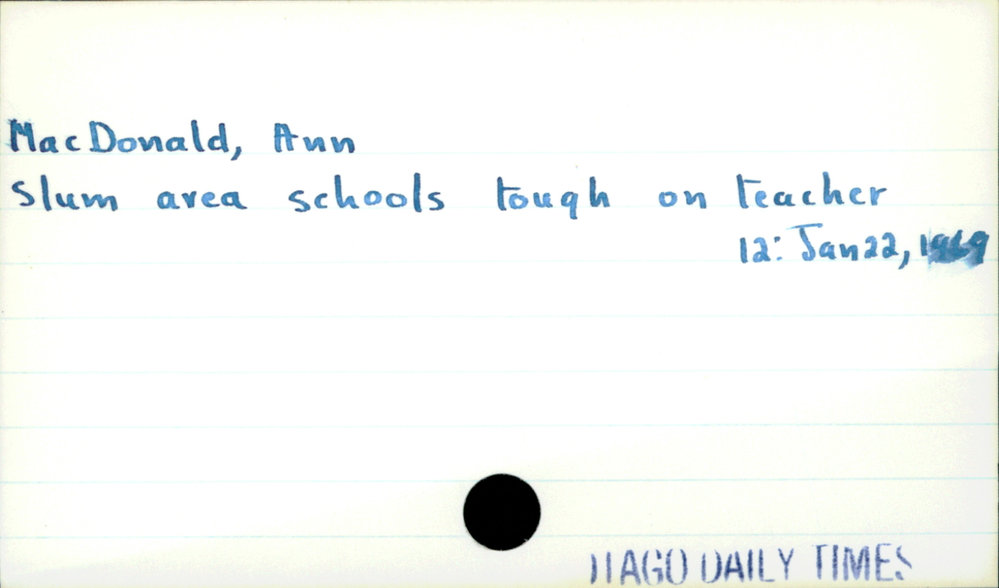 MacDonald, Ann
Slum area schools tough on teacher
12: Jan 22, 1969
OTAGO DAILY TIMES